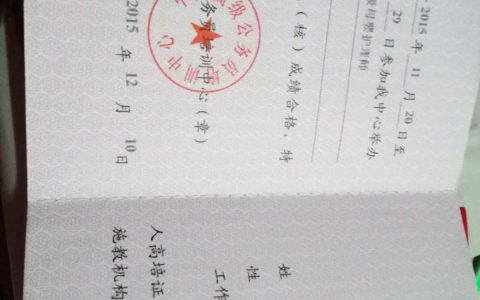 2015 年 11 月 20 日至
29 日参加我中心举办
母婴护理师
(核)成绩合格、特
务员培训中心(章)
2015 年 12 月 10 日
级公务员培训中心
姓
性
工作
人高培证
施教机构